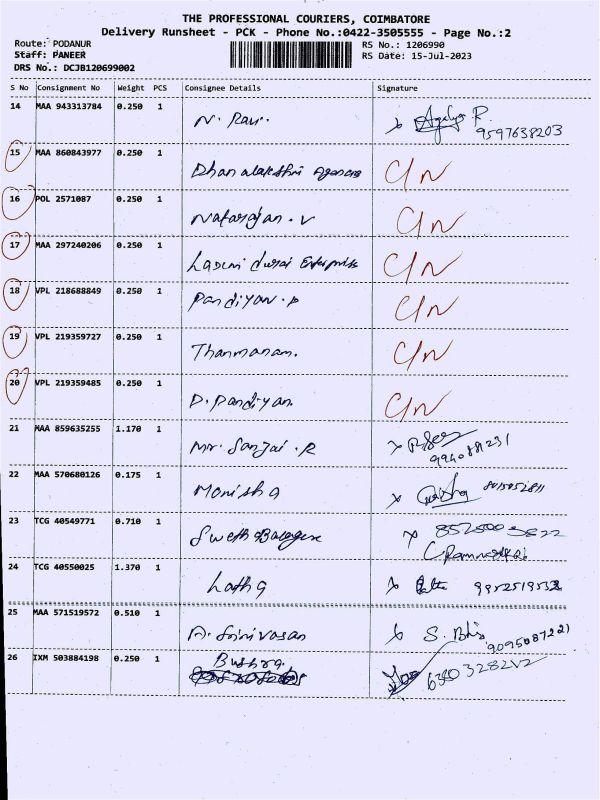 THE PROFESSIONAL COURIERS, COIMBATORE
Delivery Runsheet - PCK - Phone No.:0422-3505555 - Page No.:2
Route: PODANUR RS No.: 1206990
Staff: PANEER RS Date: 15-Jul-2023
DRS No.: DCJB120699002
S No Consignment No Weight PCS Consignee Details Signature
14 MAA 943313784 0.250 1 N. Ravi. 9597638203
15 MAA 860843977 0.250 1 Dhanalakshmi Agencies C/N
16 POL 2571087 0.250 1 Natarajan. V C/N
17 MAA 297240206 0.250 1 C/N
18 VPL 218688849 0.250 1 Pandiyan. P C/N
19 VPL 219359727 0.250 1 Thanmanam. C/N
20 VPL 219359485 0.250 1 P. Pandiyan. C/N
21 MAA 859635255 1.170 1 Mr. Sanjai. R
22 MAA 570680126 0.175 1 Monish a
23 TCG 40549771 0.710 1
24 TCG 40550025 1.370 1 Lath a
25 MAA 571519572 0.510 1 A. Srinivasan
26 IXM 503884198 0.250 1 Bushra.